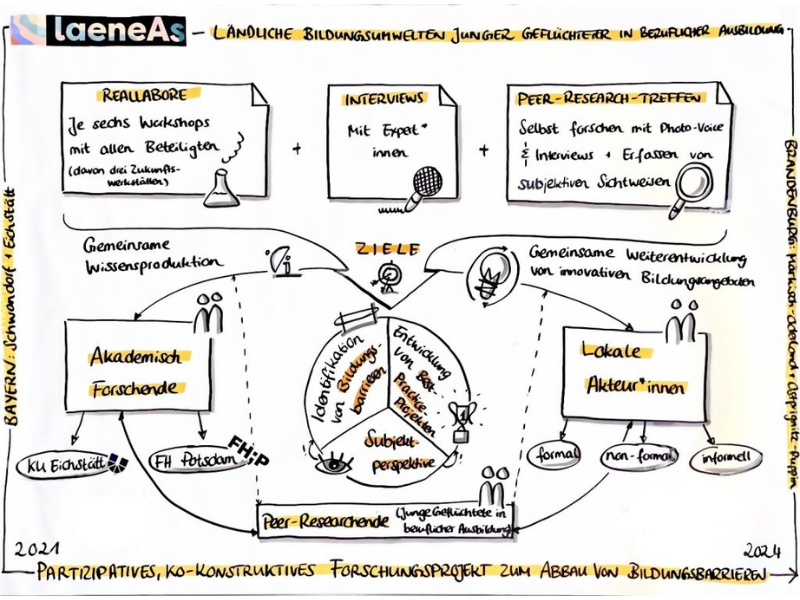 laeneAs - LÄNDLICHE BILDUNGSUMWELTEN JUNGER GEFLÜCHTETER IN BERUFLICHER AUSBILDUNG
REALLABORE
Je sechs Workshops
mit allen Beteiligten
(davon drei Zukunfts-
werkstätten)
+
INTERVIEWS
Mit Expert*
innen
+
PEER-RESEARCH-TREFFEN
Selbst forschen mit Photo-Voice
& Interviews + Erfassen von
subjektiven Sichtweisen
BAYERN: Schwandorf + Eichstätt
BRANDENBURG: Märkisch-Oderland + Ostprignitz-Ruppin
Gemeinsame
Wissensproduktion
ZIELE
Gemeinsame Weiterentwicklung
von innovativen Bildungsangeboten
Akademisch
Forschende
Identifikation
von Bildungs-
barrieren
Entwicklung
von Best
Practice
Projekten
Subjekt-
perspektive
1
Lokale
Akteur*innen
KU Eichstätt
FH Potsdam
FH;P
formal
non-formal
informell
Peer-Researchende (junge Geflüchtete in
beruflicher Ausbildung)
2021
2024
PARTIZIPATIVES, KO-KONSTRUKTIVES FORSCHUNGSPROJEKT ZUM ABBAU VON BILDUNGSBARRIEREN